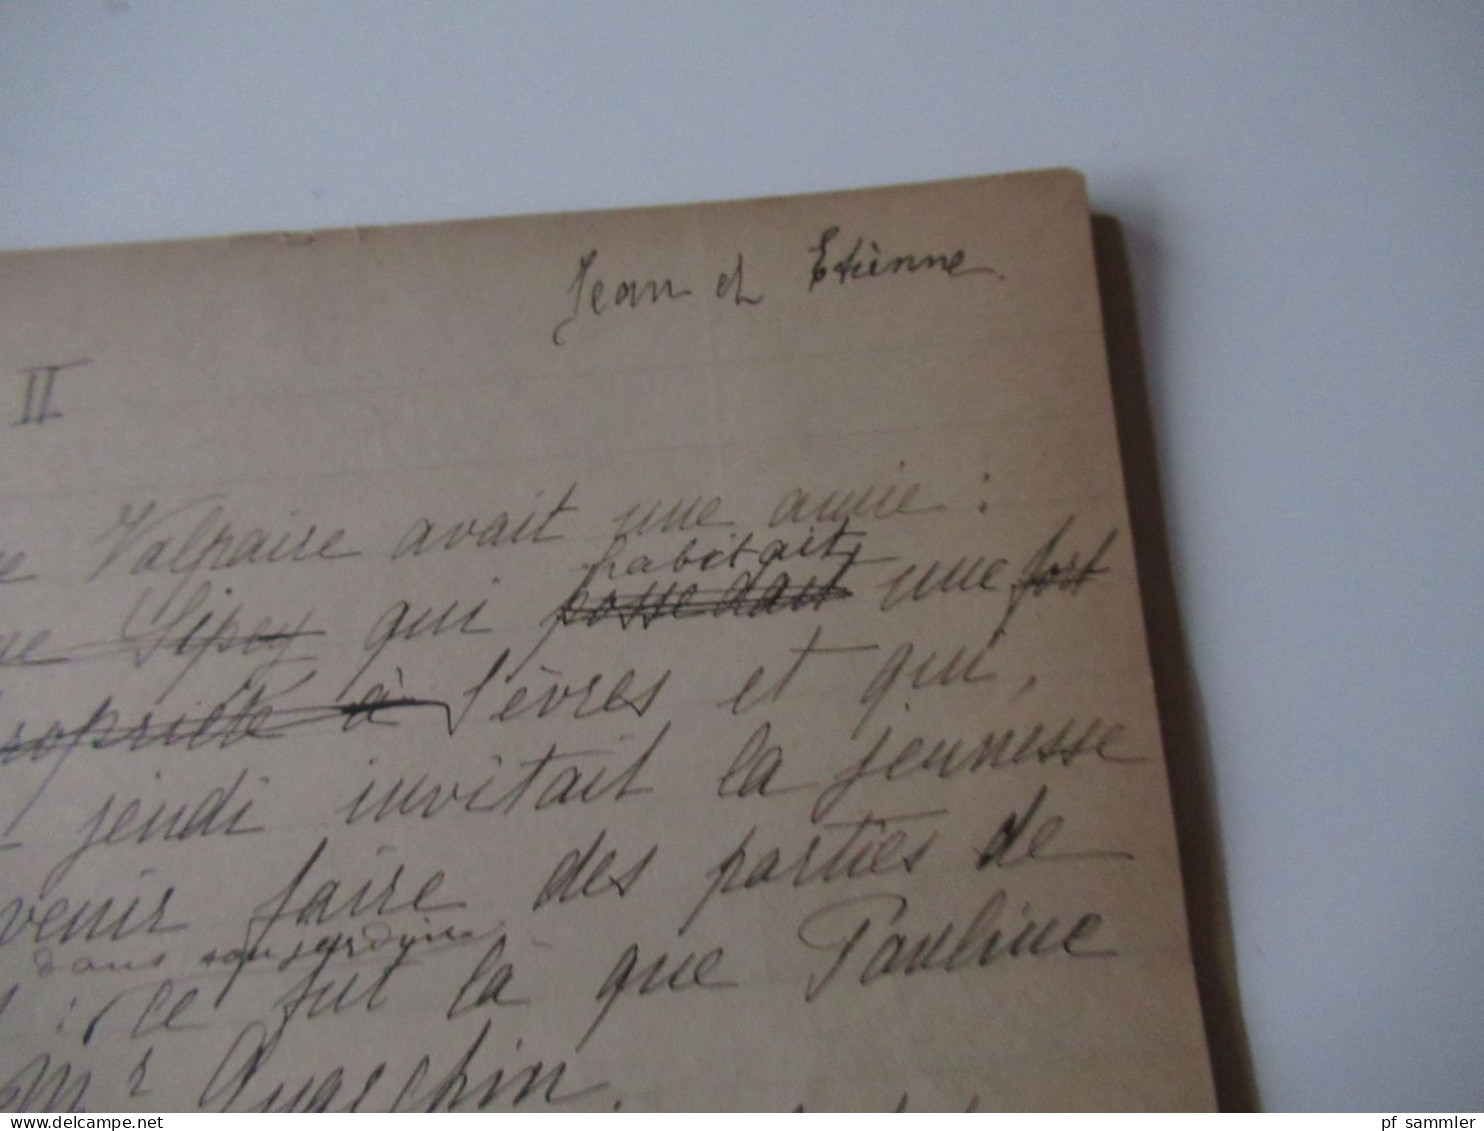 Jean et Etienne.
II
Valpaire avait une amie :
habitait
Sipey qui possedait une fort
propriété à Sèvres et qui,
jeudi invitait la jeunesse
venir faire des parties de
dans son jardin
: ce fut là que Pauline
Mr
pf sammler